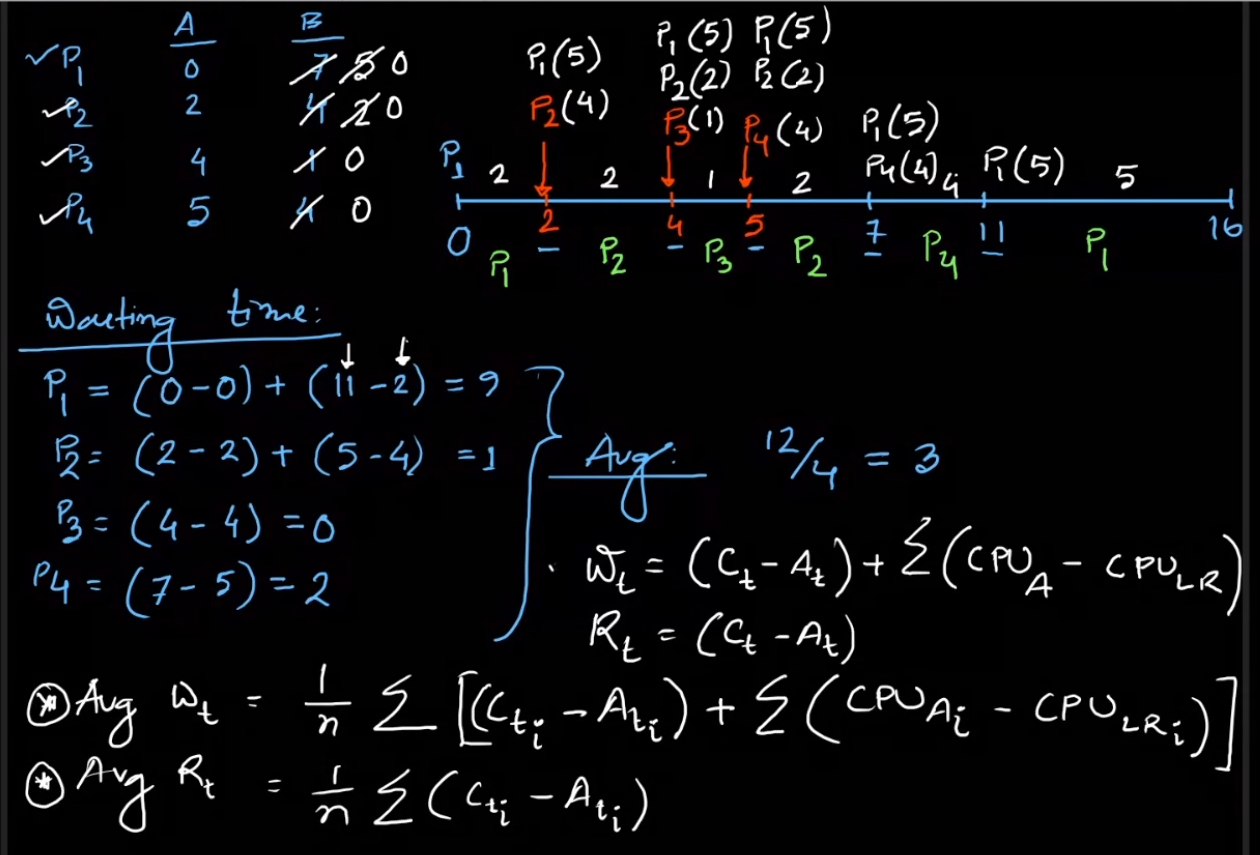 A B
✓P1 0 7 5 0
✓P2 2 4 2 0
✓P3 4 1 0
✓P4 5 4 0
P1(5) P1(5)
P1(5) P2(2) P2(2)
P2(4) P3(1) P4(4) P1(5)
P4(4) P1(5)
P1 2 2 1 2 4 5
0 2 4 5 7 11 16
P1 P2 P3 P2 P4 P1
Waiting time:
P1 = (0-0) + (11-2) = 9
P2 = (2-2) + (5-4) = 1
Avg: 12/4 = 3
P3 = (4-4) = 0
P4 = (7-5) = 2
. Wt = (Ct - At) + Σ(CPU_A - CPU_LR)
Rt = (Ct - At)
* Avg Wt = 1/n Σ [(Cti - Ati) + Σ(CPU_Ai - CPU_LRi)]
* Avg Rt = 1/n Σ(Cti - Ati)